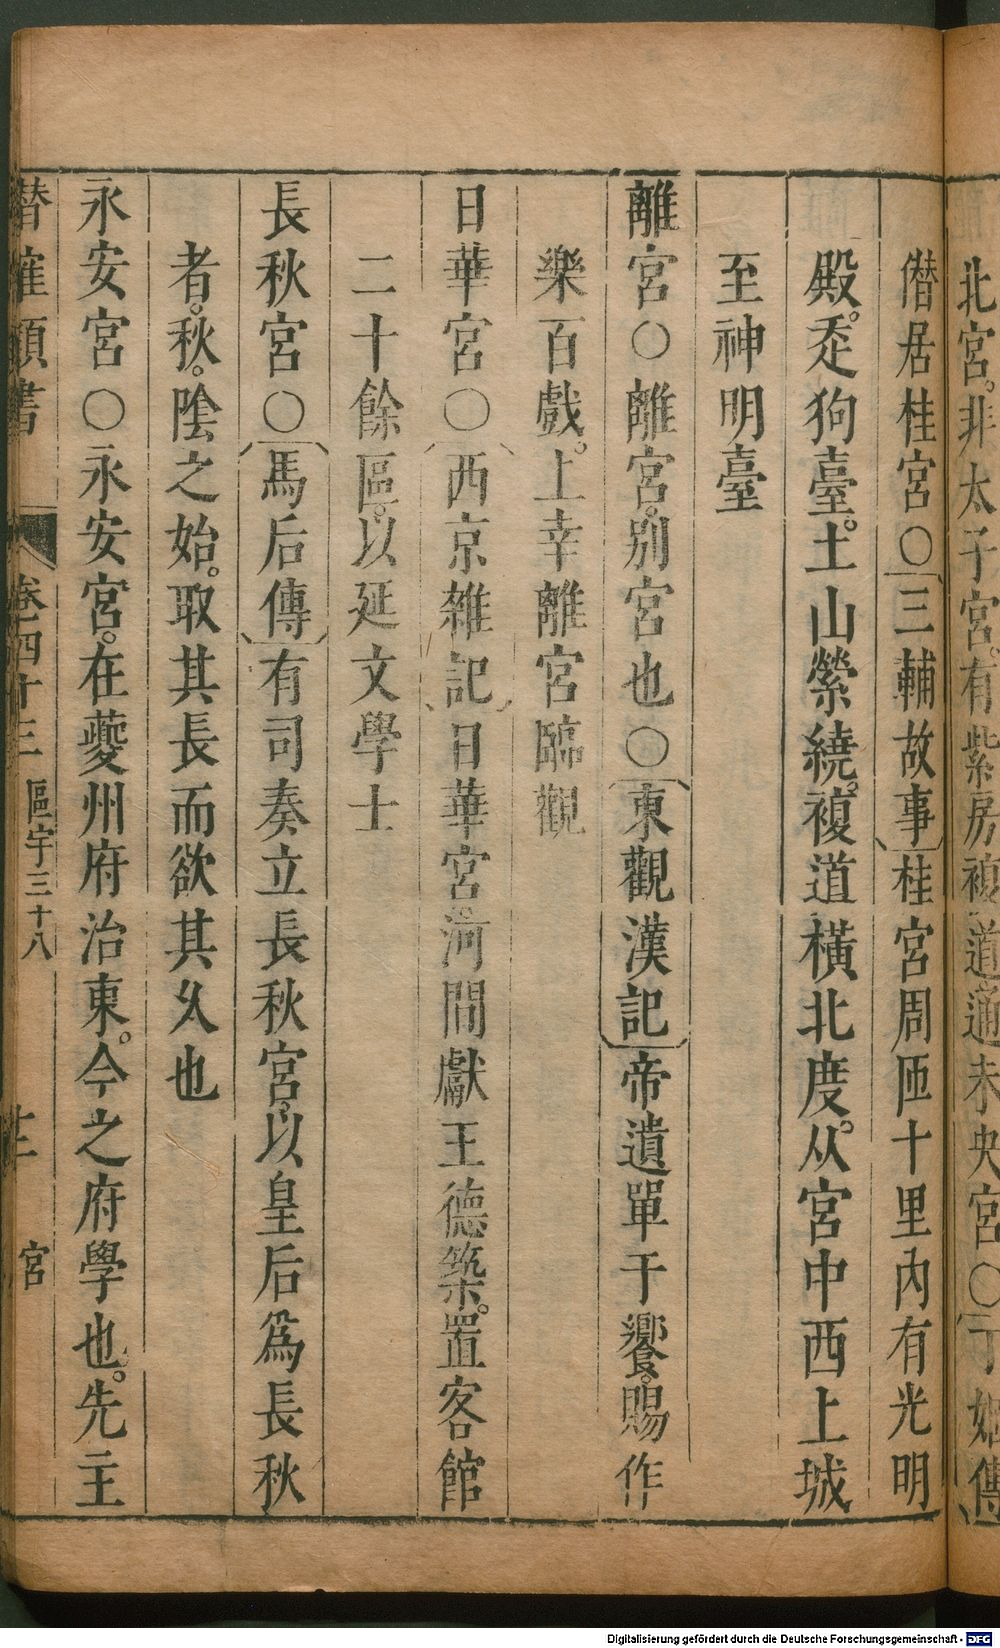 北宮。非太子宮。有紫房複道通未央宮○丁姬傳
僭居桂宮○三輔故事桂宮周匝十里內有光明
殿。走狗臺。土山縈繞。複道橫北度。从宮中西上城
至神明臺
離宮○離宮。別宮也○東觀漢記帝遺單于饗。賜作
樂百戲。上幸離宮臨觀
日華宮○西京雜記日華宮。河間獻王德築。置客館
二十餘區。以延文學士
長秋宮○馬后傳有司奏立長秋宮。以皇后爲長秋
者。秋。陰之始。取其長而欲其久也
永安宮○永安宮。在夔州府治東。今之府學也。先主
潛確類書 卷四十三 區宇三十八 宮
Digitalisierung gefördert durch die Deutsche Forschungsgemeinschaft - DFG